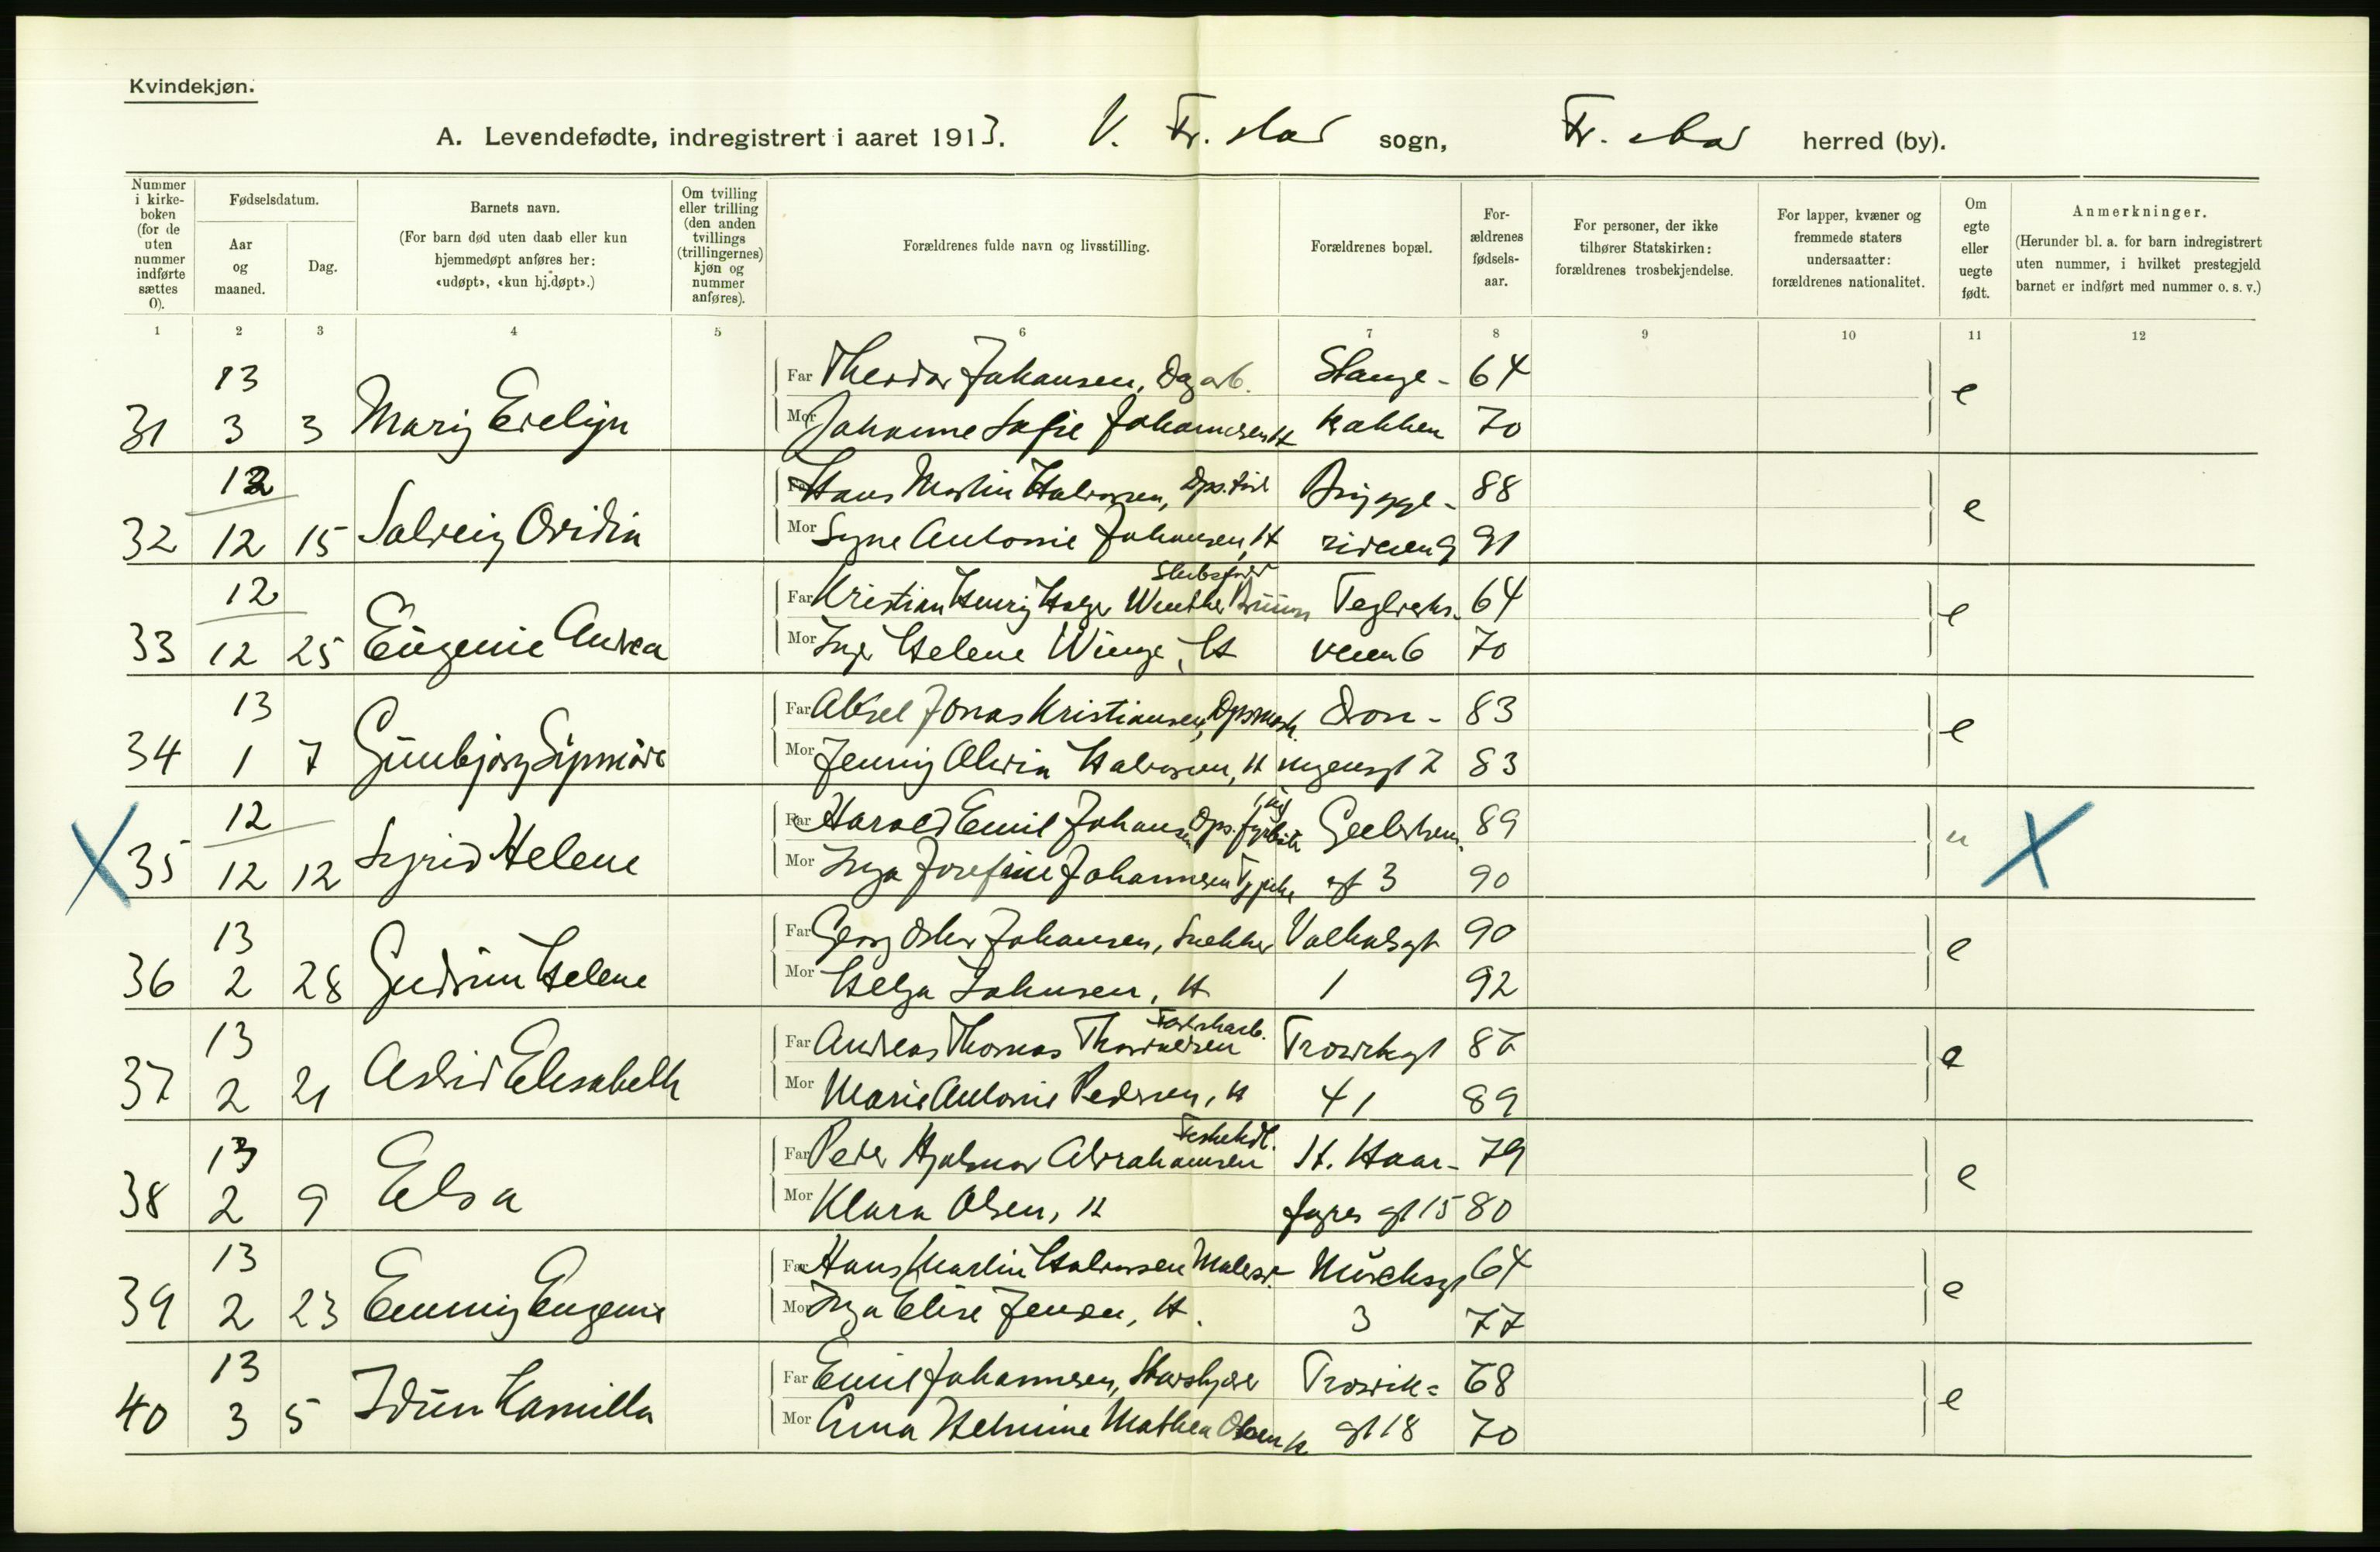 Kvindekjøn.
A. Levendefødte, indregistrert i aaret 1913. V. Fr. stad sogn, Fr. stad herred (by).
Nummer i kirke-boken (for de uten nummer indførte sættes 0).
Fødselsdatum.
Aar og maaned.
Dag.
Barnets navn.
(For barn død uten daab eller kun hjemmedøpt anføres her: «udøpt», «kun hj.døpt».)
Om tvilling eller trilling (den anden tvillings (trillingernes) kjøn og nummer anføres).
Forældrenes fulde navn og livsstilling.
Forældrenes bopæl.
For-ældrenes fødsels-aar.
For personer, der ikke tilhører Statskirken: forældrenes trosbekjendelse.
For lapper, kvæner og fremmede staters undersaatter: forældrenes nationalitet.
Om egte eller uegte født.
Anmerkninger.
(Herunder bl. a. for barn indregistrert uten nummer, i hvilket prestegjeld barnet er indført med nummer o. s. v.)
1 2 3 4 5 6 7 8 9 10 11 12
13 Far Theodor Johansen, Dagarb. Stange- 64
31 3 3 Mary Evelyn Mor Johanne Sofie Johannesen H bakken 70 e
12 Hans Martin Halvorsen, Brygge- 88
32 12 15 Solveig Ovidia Mor Syne Antonie Johansen, H 91 e
12 Far Kristian Henry Holger Winther Bruun Teglverks- 64
33 12 25 Eugenie Andrea Mor Inga Helene Winge, H veien 6 70 e
13 Far Aksel Jonas Kristiansen, Dpsmask. Dron- 83
34 1 7 Gunbjørg Mor Jenny Alvin Halvorsen, H ningensgt 2 83 e
12 Far Harald Emil Johansen Dps. fyrbøter Geelmuydens- 89
35 12 12 Sigrid Helene Mor Inga Josefine Johannesen gt 3 90 u
13 Far Georg Oskar Johansen, Snekker Valhalsgt 90
36 2 28 Gudrun Helene Mor Helga Johnsen, H 1 92 e
13 Far Andreas Thomas Thorvaldsen Trosvikgt 87
37 2 21 Astrid Elisabeth Mor Marie Antonie Pedersen, H 41 89 e
13 Far Peder Hjalmar Abrahamsen Fiskehdl. H. Haar- 79
38 2 9 Elsa Mor Klara Olsen, H fagres gt 15 80 e
13 Far Hans Martin Halvorsen Malersv. Munchsgt 64
39 2 23 Emmy Eugenie Mor Inga Elise Jensen, H. 3 77 e
13 Far Emil Johannesen, Trosvik- 68
40 3 5 Idun Kamilla Mor Anna Helmine Mathea Olsen H gt 18 70 e